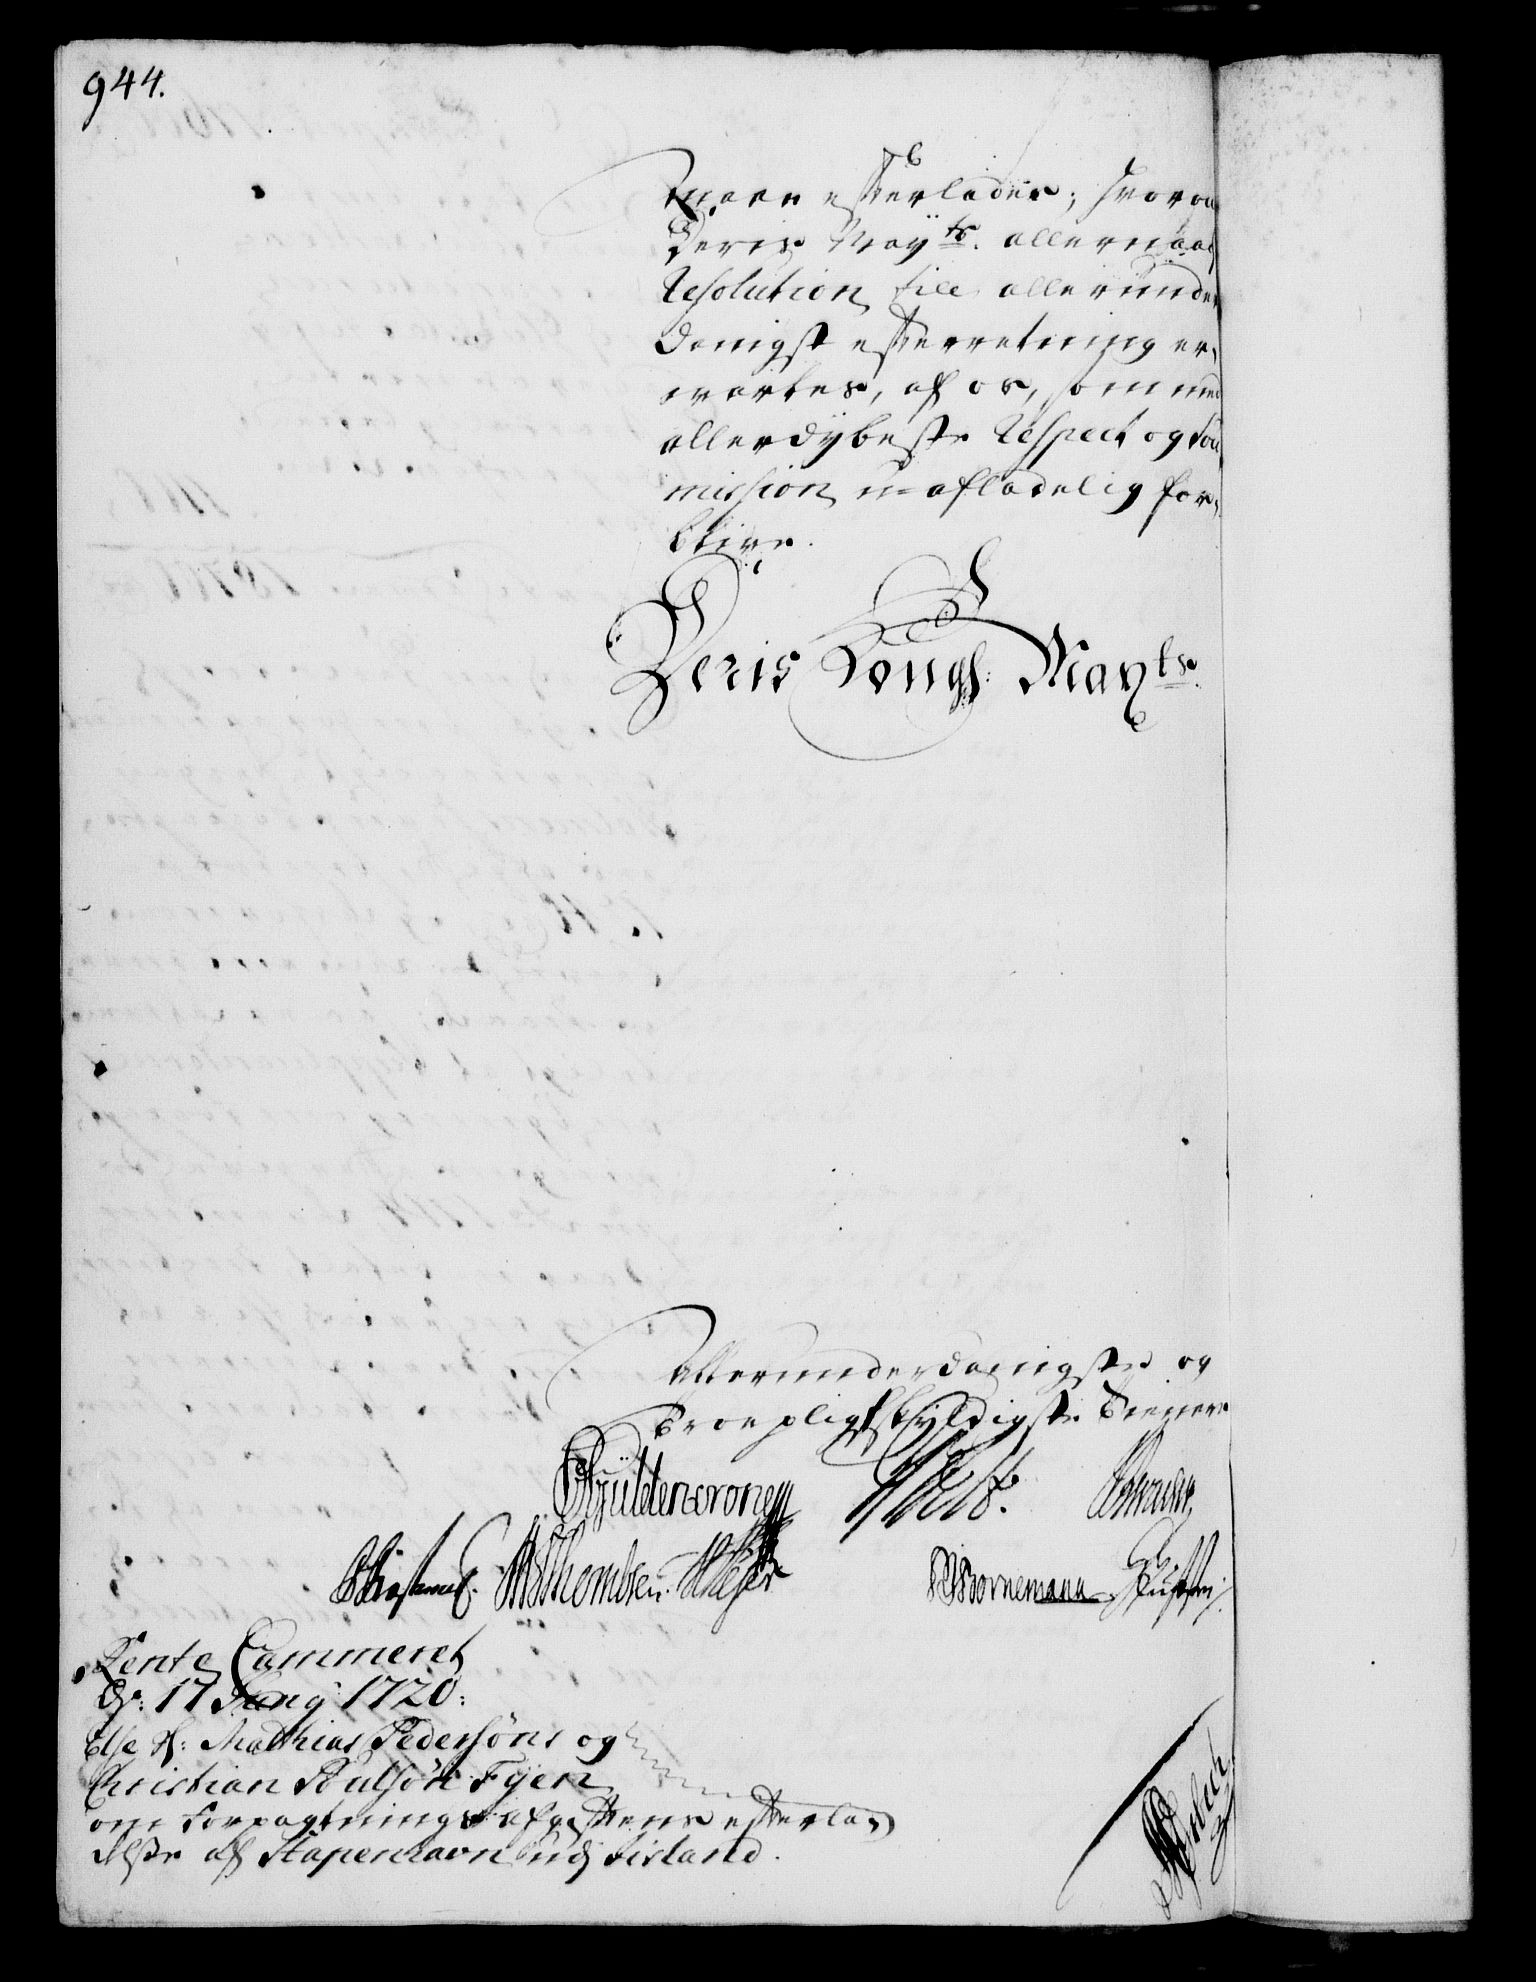 944.
maae efterlades; hvorom
Deris Mayts. allernaad
Resolution till allerunder
danigst efterretning er,
vartes, af os, som med
allerdybeste Respect og Sou
mission u-afladelig for,
blive.
Deris Kongl: Mayts.
Allerunderdanigste og
troe pligtskyldigste tienere
Güldencrone
WThomsen. Meÿer
Bornemann
Rente Cammeret
D: 17 Juny 1720:
Else Sl: Mathias Pedersöns og
Christian Poulsön Fyen
om Forpagtnings afgiftens efterla,
delse af Stapenhavn udj Iisland.